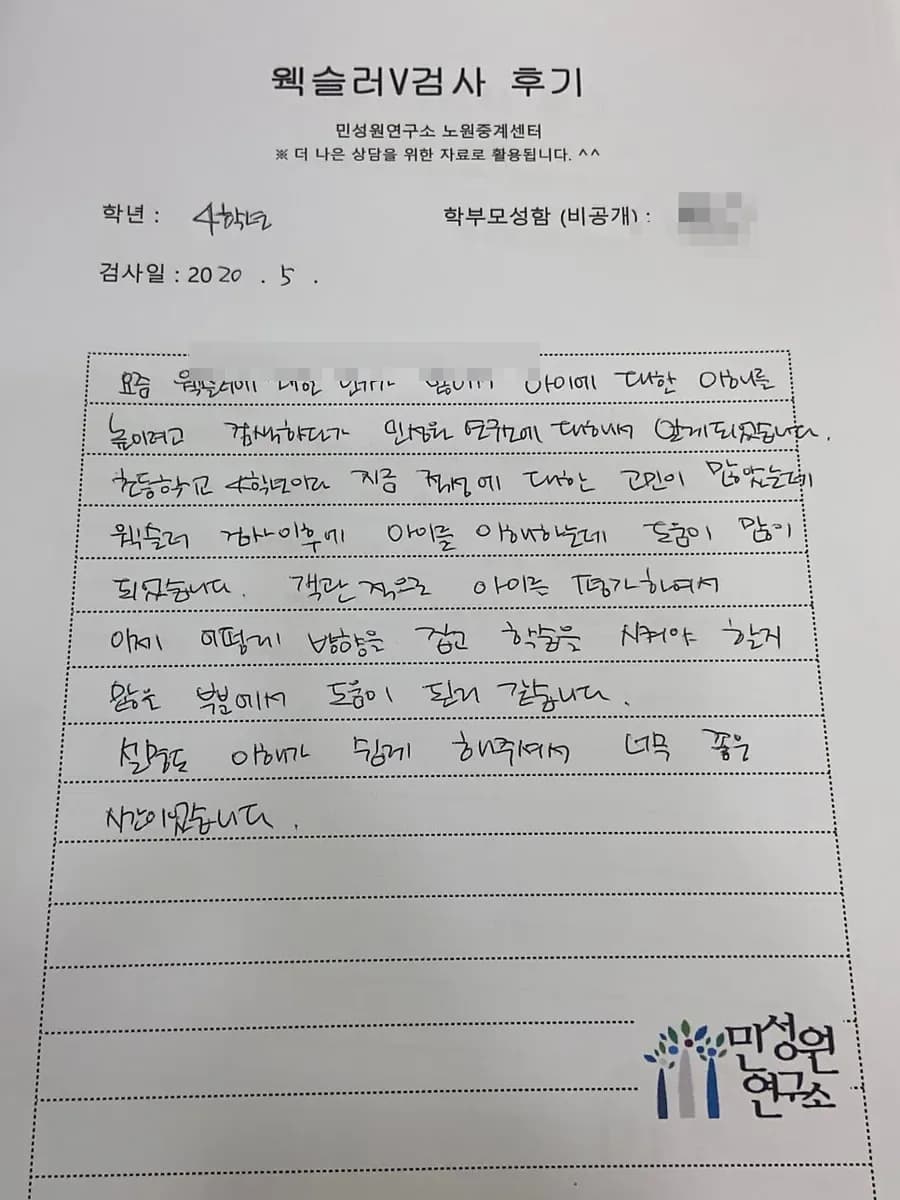 웩슬러V검사 후기
민성원연구소 노원중계센터
※ 더 나은 상담을 위한 자료로 활용됩니다. ^^
학년 : 4학년
학부모성함 (비공개) :
검사일 : 2020 . 5 .
요즘 웩슬러에 대한 아이에 대한 이해를
높이려고 검색하다가 민성원 연구소에 대해서 알게되었습니다.
초등학교 4학년이라 지금 적성에 대한 고민이 많았는데
웩슬러 검사이후에 아이를 이해하는데 도움이 많이
되었습니다. 객관적으로 아이를 평가하여서
이제 어떻게 방향을 잡고 학습을 시켜야 할지
많은 부분에서 도움이 된거 같습니다.
설명도 이해가 쉽게 해주셔서 너무 좋은
시간이었습니다.
민성원
연구소